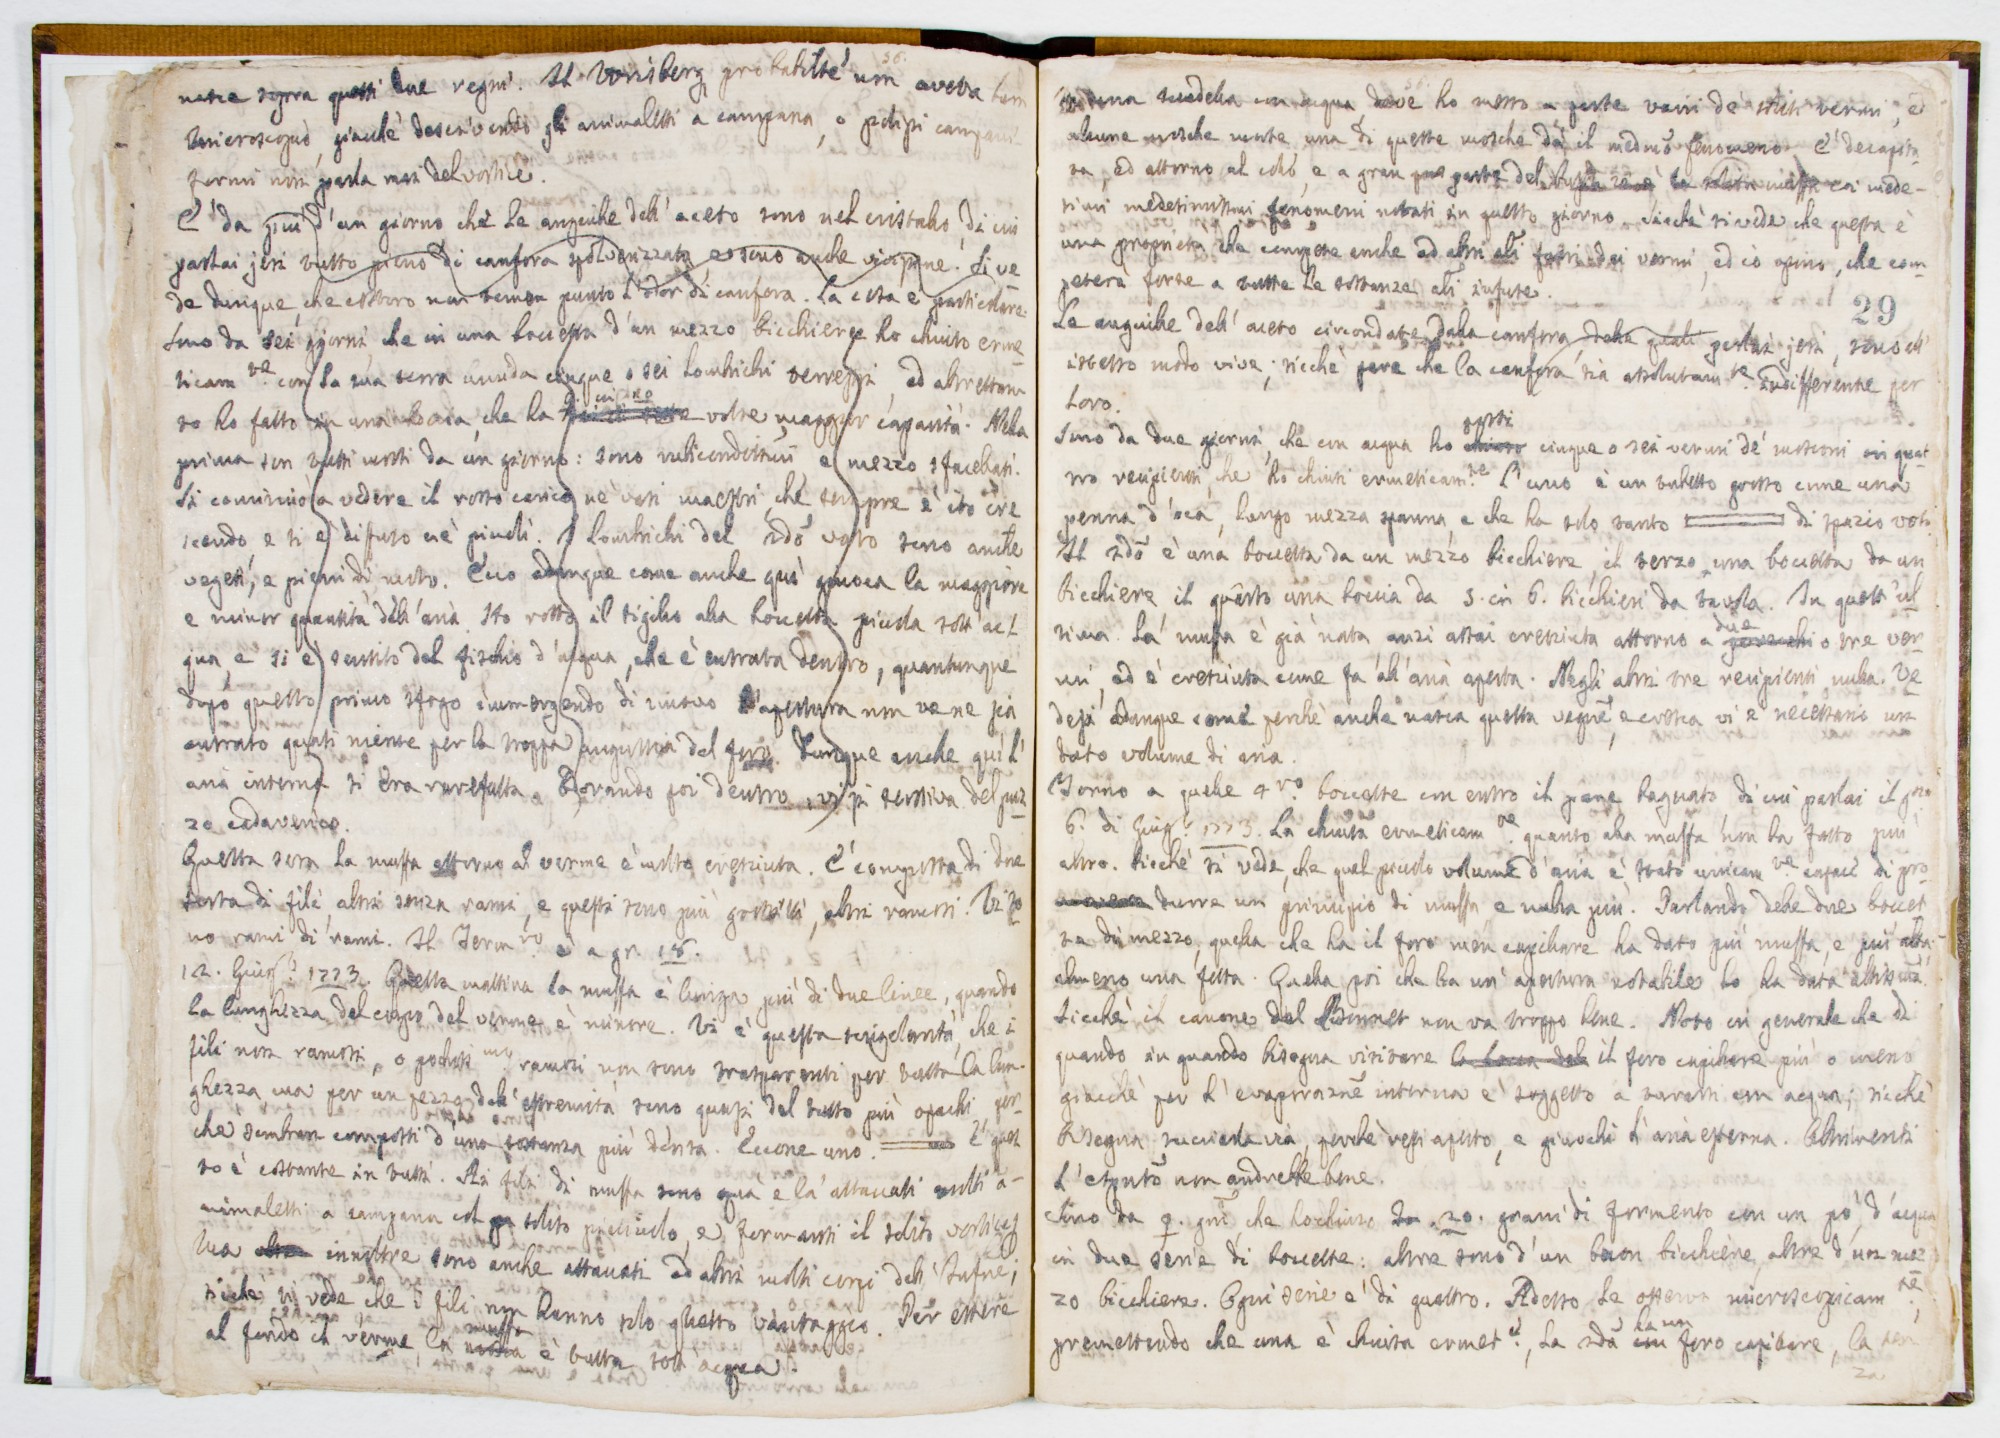 nasce sopra questi due regni. Il Wrisberg probabilte non aveva buon
microscopio, giacchè descrivendo gli animaletti a campana, o polipi campani
formi non parla mai del vortice.
È da più d'un giorno che le anguille dell'aceto sono nel cristallo, di cui
parlai jeri tutto pieno di canfora spolverizzata e sono anche vivissime. Si ve
de dunque, che costoro non temon punto l'odor di canfora. La cosa è particolare.
Sono da sei giorni, che in una boccetta d'un mezzo bicchiere ho chiuso erme
ticam te con la sua terra umida cinque o sei lombrichi terrestri, ed altrettan
to ho fatto in una boccia, che ha volte maggior capacità. Nella
prima son tutti morti da un giorno: sono rubicondissimi e mezzo sfacellati.
Si cominciò a vedere il rosso carico ne' vasi maestri, che sempre è ito cre
scendo e si è diffuso ne' piccoli. I lombrichi del 2do vaso sono anche
vegeti, e pieni di moto. Ecco adunque come anche qui giuoca la maggiore
e minor quantità dell'aria. Ho rotto il sigillo alla boccetta piccola sott'ac
qua, e si è sentito del fischio d'acqua, che è entrata dentro, quantunque
dopo questo primo sfogo immergendo di nuovo l'apertura non ve ne sia
entrato quasi niente per la troppa angustia del foro. Dunque anche qui l'
aria interna si era rarefatta. Odorando poi dentro, vi si sentiva del puz
zo cadaverico.
Questa sera la muffa attorno al verme è molto cresciuta. È composta di due
sorta di fili, altri senza rami, e questi sono più grossi, altri ramosi. Vi so
no rami di rami. Il Termro è a gr. 18.
12. Giugo 1773. Questa mattina la muffa è lunga più di due linee, quando
la lunghezza del corpo del verme è minore. Vi è questa singolarità, che i
fili non ramosi, o pochissmo ramosi non sono trasparenti per tutta la lun-
ghezza, ma per un pezzo dell'estremità sono quasi del tutto più opachi, per
che sembran composti d'una sostanza più densa. Eccone uno. E ques
to è costante in tutti. Ai fili di muffa sono qua e là attaccati molti a-
nimaletti a campana col solito picciuolo, e formanti il solito vortice
Ma innoltre sono anche attaccati ad altri molti corpi dell'Infusne;
sichè si vede che i fili non hanno solo questo vantaggio. Per essere
al fondo il verme, la muffa è tutta sott'acqua.
scodella con acqua, dove ho messo a parte varii de' soliti vermi, e
alcune mosche morte, una di queste mosche dà il medmo fenomeno. È decapita
ta, ed attorno al collo, e a gran parte del la solita muffa coi mede-
simi medesimissimi fenomeni notati in questo giorno. Sicchè si vede che questa è
una proprietà che compete anche ad altri fuori dei vermi, ed io opino, che com
peterà forse a tutte le sostanze infuse.
29
Le anguille dell'aceto circondate dalla canfora, delle quali parlai jeri, sono all'
istesso modo vive; sicchè pare che la canfora sia assolutamte indifferente per
loro.
Sono da due giorni, che con acqua ho posti cinque o sei vermi de' mosconi in quat
tro recipienti, che ho chiusi ermeticamte. L'uno è un tubetto grosso come una
penna d'oca, lungo mezza spanna e che ha solo tanto di spazio voto.
Il 2do è una boccetta da un mezzo bicchiere, il terzo una boccetta da un
bicchiere il quarto una boccia da 5. in 6. bicchieri da tavola. In quest'ul
tima la muffa è già nata, anzi assai cresciuta attorno a due o tre ver
mi, ed è cresciuta come fa all'aria aperta. Negli altri tre recipienti nulla. Ve
desi dunque come perchè anche nasca questa vegne, e cresca vi è necessario un
dato volume di aria.
Torno a quelle 4ro boccette con entro il pane bagnato di cui parlai il gno
6. di Giugo 1773. La chiusa ermeticamte quanto alla muffa non ha fatto più
altro. Sicchè si vede, che quel piccolo volume d'aria è stato unicamte capace di pro
durre un principio di muffa e nulla più. Parlando delle due boccet
te di mezzo, quella che ha il foro men capillare ha dato più muffa, e più alta
almeno una festa. Quella poi che ha un'apertura notabile lo ha data altissma.
Sicchè il canone del Bonnet non va troppo bene. Noto in generale che di
quando in quando bisogna visitare il foro capillare più o meno
giacchè per l'evaporazne interna è soggetto a turarsi con acqua; sicchè
bisogna succiarla via, perchè resti aperto, e giuochi l'aria esterna. Altrimenti
l'espmto non andrebbe bene.
Sono da 9. gni che ho chiuso 20. grani di formento con un pò d'acqua
in due serie di boccette: altre sono d'un buon bicchiere, altre d'un mez
zo bicchiere. Ogni serie è di quattro. Adesso le osservo microscopicamte,
premettendo che una è chiusa ermete, la 2da ha un foro capillare, la ter
za